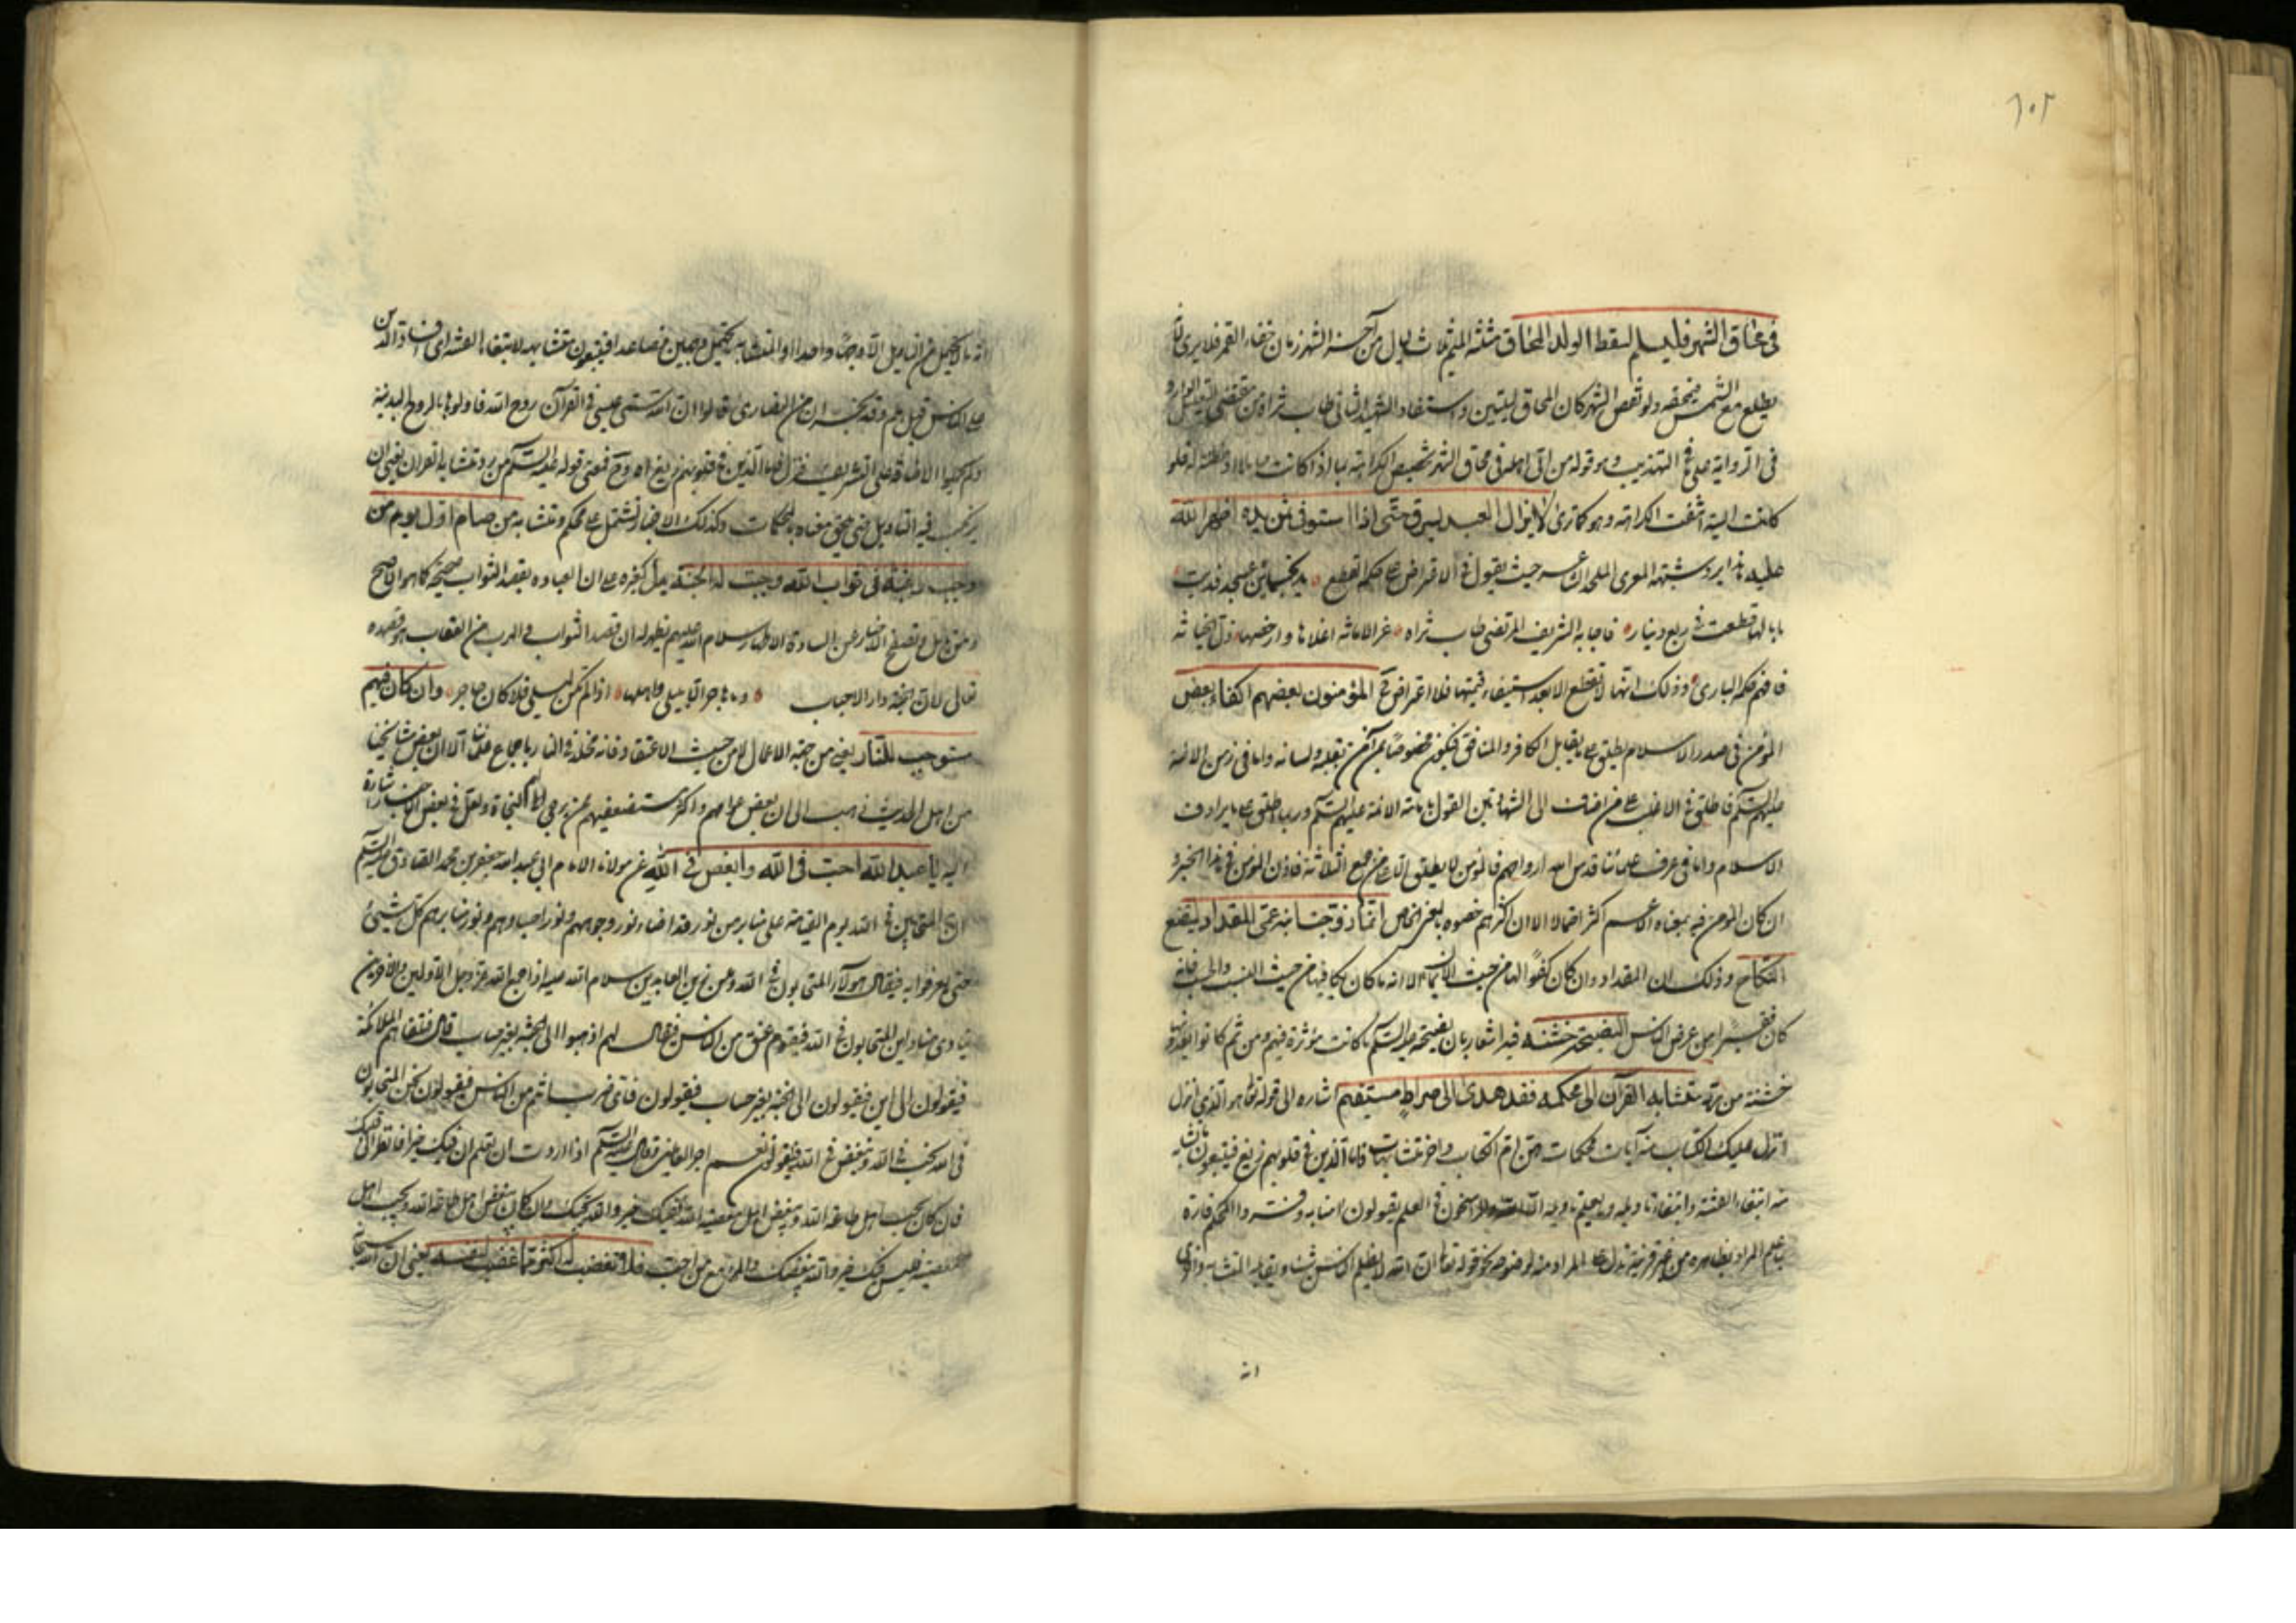 ١٠٢
في محاق الشهر فليسلم لسقط الولد المحاق مثلثة الميم ثلاث ليال من آخر الشهر زمان خفاء القمر فلا يرى لأنه
يطلع مع الشمس فيمحقه ولو نقص الشهر كان المحاق ليلتين واستفاد الشهيد الثاني طاب ثراه من مقتضى التعليل الوارد
في الرواية على ما في التهذيب وهو قوله من أتى أهله في محاق الشهر تخصيص الكراهة بما إذا كانت حاملا فلو
كانت انتفت الكراهة وهو كما ترى لا يزال العبد يسرق حتى إذا استوفى ثمن يده أظهر الله
عليه هذا يرد شبهة المعري الملحد حيث يقول في الاعتراض على حكم القطع يد بخمس مئين عسجد فديت
ما بالها قطعت في ربع دينار فأجابه الشريف المرتضى طاب ثراه عز الأمانة أغلاها وأرخصها ذل الخيانة
فافهم حكمة الباري وذلك انها لا تقطع الا بعد استيفاء قيمتها فلا اعتراض المؤمنون بعضهم أكفاء بعض
المؤمن في صدر الإسلام يطلق على ما يقابل الكافر والمنافق فيكون مخصوصا بمن آمن بقلبه ولسانه واما في زمن الأئمة
عليهم السلام فاطلق في الأغلب على من اضاف إلى الشهادتين القول بإمامة الأئمة عليهم السلام وربما اطلق على ما يرادف
الإسلام واما في عرف علمائنا قدس الله أرواحهم فالمؤمن لا يطلق إلا على من جمع الثلاثة فاذن المؤمن في هذا الخبر و
ان كان المؤمن فيه بمعناه الأعم أكثر احتمالا الا ان أكثرهم خصوه بالمعنى الخاص انما زوجت ابنة عمي المقداد ليتضع
النكاح وذلك ان المقداد وان كان كفوا لها من حيث الايمان الا انه ما كان يكافيها من حيث النسب والحسب فإنه
كان فقيرا من عرض الناس النصيحة خشنة فيه اشعار بان نصيحته عليه السلام كانت مؤثرة فيهم ومن ثم كانوا يعدونها
خشنة من رد متشابه القرآن إلى محكمه فقد هدى إلى صراط مستقيم اشارة إلى قوله تعالى هو الذي أنزل
أنزل عليك الكتاب منه آيات محكمات هن أم الكتاب وأخر متشابهات فأما الذين في قلوبهم زيغ فيتبعون ما تشابه
منه ابتغاء الفتنة وابتغاء تأويله وما يعلم تأويله الا الله والراسخون في العلم يقولون آمنا به وفسروا المحكم تارة
بما علم المراد بظاهره من غير قرينة تدل على المراد منه لوضوحه نحو قوله تعالى ان الله لا يظلم الناس شيئا ويقابله المتشابه واخرى
انه
انه ما لا يحتمل من التأويل إلا وجها واحدا والمتشابه يحتمل وجهين فصاعدا فيتبعون متشابهه لابتغاء الفتنة أي افساد الدين
على الناس قيل هم وفد نجران من النصارى قالوا ان الله سمى عيسى في القرآن روح الله فأولوها بالروح البدنية
ولم يحملوا الاضافة على التشريف فنزل فأما الذين في قلوبهم زيغ فمعنى قوله عليه السلام من رد متشابه القرآن يعني ان
يرتكب فيه التأويل حتى يحق معناه بالمحكمات وكذلك الأخبار تشتمل على محكم ومتشابه من صام أول يوم من
رجب رغبة في ثواب الله وجبت له الجنة يدل كغيره على ان العبادة بقصد الثواب صحيحة كما هو الأصح
ومن تأمل وتصفح الأخبار عن السادة الأطهار سلام الله عليهم يظهر له ان قصد الثواب والهرب من العقاب هو قصده
تعالى لان الجنة دار الأحباب وما هاجر الا ليلى وأهلها إذا لم تكن ليلى فلا كان هاجر وان كان فيهم
مستوجب للنار يعني من جهة الأعمال لا من حيث الاعتقاد فانه مخلد في النار باجماع علمائنا الا ان بعض مشايخنا
من أهل الحديث ذهب إلى ان بعض عوامهم وأكثر مستضعفيهم ممن يرجى لهم النجاة ولعل في بعض الأخبار اشارة
إليه يا عبد الله أحب في الله وأبغض في الله عن مولانا الإمام أبي عبد الله جعفر بن محمد الصادق عليه السلام
ان المتحابين في الله يوم القيامة على منابر من نور قد أضاء نور وجوههم ونور أجسادهم ونور منابرهم كل شيء
حتى يعرفوا به فيقال هؤلاء المتحابون في الله وعن زين العابدين سلام الله عليه إذا جمع الله عز وجل الأولين والآخرين
ينادي مناد أين المتحابون في الله فيقوم عنق من الناس فيقال لهم اذهبوا إلى الجنة بغير حساب قال فتلقاهم الملائكة
فيقولون إلى أين فيقولون إلى الجنة بغير حساب فيقولون فأي ضرب أنتم من الناس فيقولون نحن المتحابون
في الله نحب في الله ونبغض في الله فيقولون نعم أجر العاملين وقال عليه السلام إذا أردت ان تعلم ان فيك خيرا فانظر إلى قلبك
فان كان يحب أهل طاعة الله ويبغض أهل معصية الله ففيك خير والله يحبك وان كان يبغض أهل طاعة الله ويحب أهل
معصيته فليس فيك خير والله يبغضك والمرء مع من أحب فلا تغضب له أكثر مما غضب لنفسه يعني ان الله سبحانه